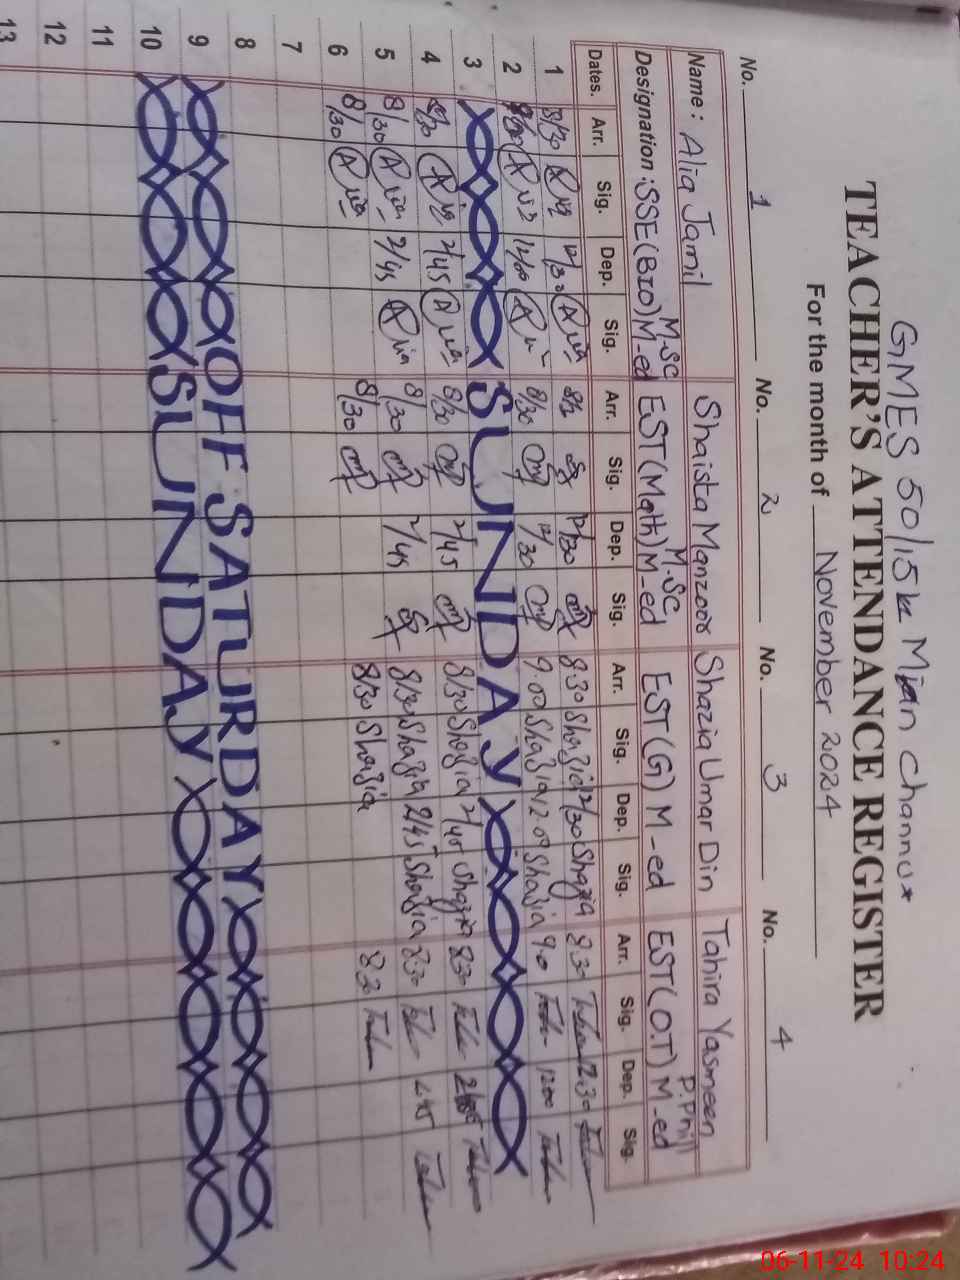 GMES 50/15L Mian Channu*
TEACHER'S ATTENDANCE REGISTER
For the month of November 2024
No. 1 No. 2 No. 3 No. 4
Name: Alia Jamil Shaista Manzoor Shazia Umar Din Tahira Yasmeen
M.SC M.SC P.Phill
Designation: SSE(BIO) M-ed EST(Math) M-ed EST(G) M-ed EST(O.T) M-ed
Dates. Arr. Sig. Dep. Sig. Arr. Sig. Dep. Sig. Arr. Sig. Dep. Sig. Arr. Sig. Dep. Sig.
1 8/30 12/30 12/30 8:30 Shazia 12/30 Shazia 8:30 12:30
2 12/00 8/30 12/30 9:00 Shazia 12:00 Shazia 9:0 1200
3 SUNDAY
4 8/30 2/45 8/30 2/45 8/30 Shazia 2/45 Shazia 830
5 8/30 2/45 8/30 2/45 8/30 Shazia 2/45 Shazia 830 245
6 8/30 8/30 8/30 Shazia 830
7
8
9 OFF SATURDAY
10 SUNDAY
11
12
13
06-11-24 10:24